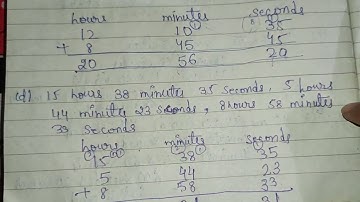 hours minutes seconds
12 10 35
+ 8 45 45
20 56 20
(d) 15 hours 38 minutes 35 seconds, 5 hours
44 minutes 23 seconds, 8 hours 58 minutes
33 seconds
hours minutes seconds
15 38 35
5 44 23
+ 8 58 33